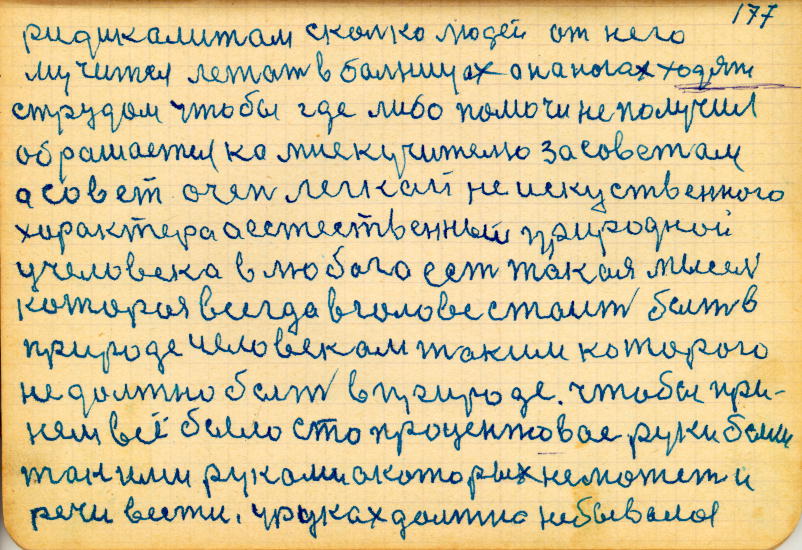 177
ридикалитам сколко людей от него
мучится летат в болницах а на ногах ходят
струдом чтобы где либо помочи неполучил
обрашается ко мне кучителю засоветам
а совет очен легкай не искуственного
характера а естественный природной
учеловека влюбога ест такая мысел
которая всегда вголове стаит быт в
природе человекам таким которого
не должно быт в природе. чтобы при-
нем всё было сто процентовое руки были
такими руками о которых неможет и
речи вести. уруках должно небывалоя